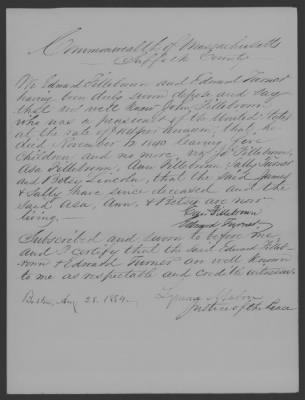 Commonwealth of Massachusetts
Suffolk County
We Edward Fillebrown and Edward Turner
having been duly sworn depose and say
that we well knew John Fillebrown
who was a pensioner of the United States
at the rate of per annum, that he
died November leaving five
children and no more, viz
Asa Fillebrown, Ann Fillebrown, Sally Turner
and Betsy Lincoln, that the said James
& Sally have since deceased and the
said Asa, Ann, & Betsy are now
living.
Fillebrown
Edward Turner
Subscribed and sworn to before me,
and I certify that the said Edward Fille-
brown & Edward Turner are well known
to me as respectable and credible witnesses.
Boston, Aug 28. 1854.
Justice of the Peace